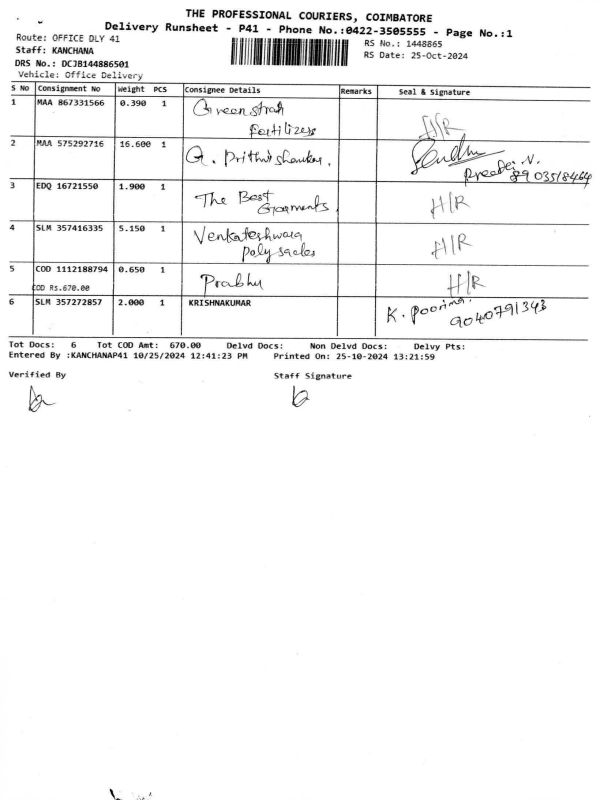 THE PROFESSIONAL COURIERS, COIMBATORE
Delivery Runsheet - P41 - Phone No.:0422-3505555 - Page No.:1
Route: OFFICE DLY 41
RS No.: 1448865
Staff: KANCHANA
RS Date: 25-Oct-2024
DRS No.: DCJB144886501
Vehicle: Office Delivery
S No Consignment No Weight PCS Consignee Details Remarks Seal & Signature
1 MAA 867331566 0.390 1 Greenstrah H/R
Fertilizers
2 MAA 575292716 16.600 1 G. Prithvishankar.
Preethi.V.
8903518464
3 EDQ 16721550 1.900 1 The Best H/R
Garments
4 SLM 357416335 5.150 1 Venkateshwara H/R
Poly sacks
5 COD 1112188794 0.650 1 Prabhu H/R
COD Rs.670.00
6 SLM 357272857 2.000 1 KRISHNAKUMAR K. Poorima.
9040791343
Tot Docs: 6 Tot COD Amt: 670.00 Delvd Docs: Non Delvd Docs: Delvy Pts:
Entered By :KANCHANAP41 10/25/2024 12:41:23 PM Printed On: 25-10-2024 13:21:59
Verified By Staff Signature